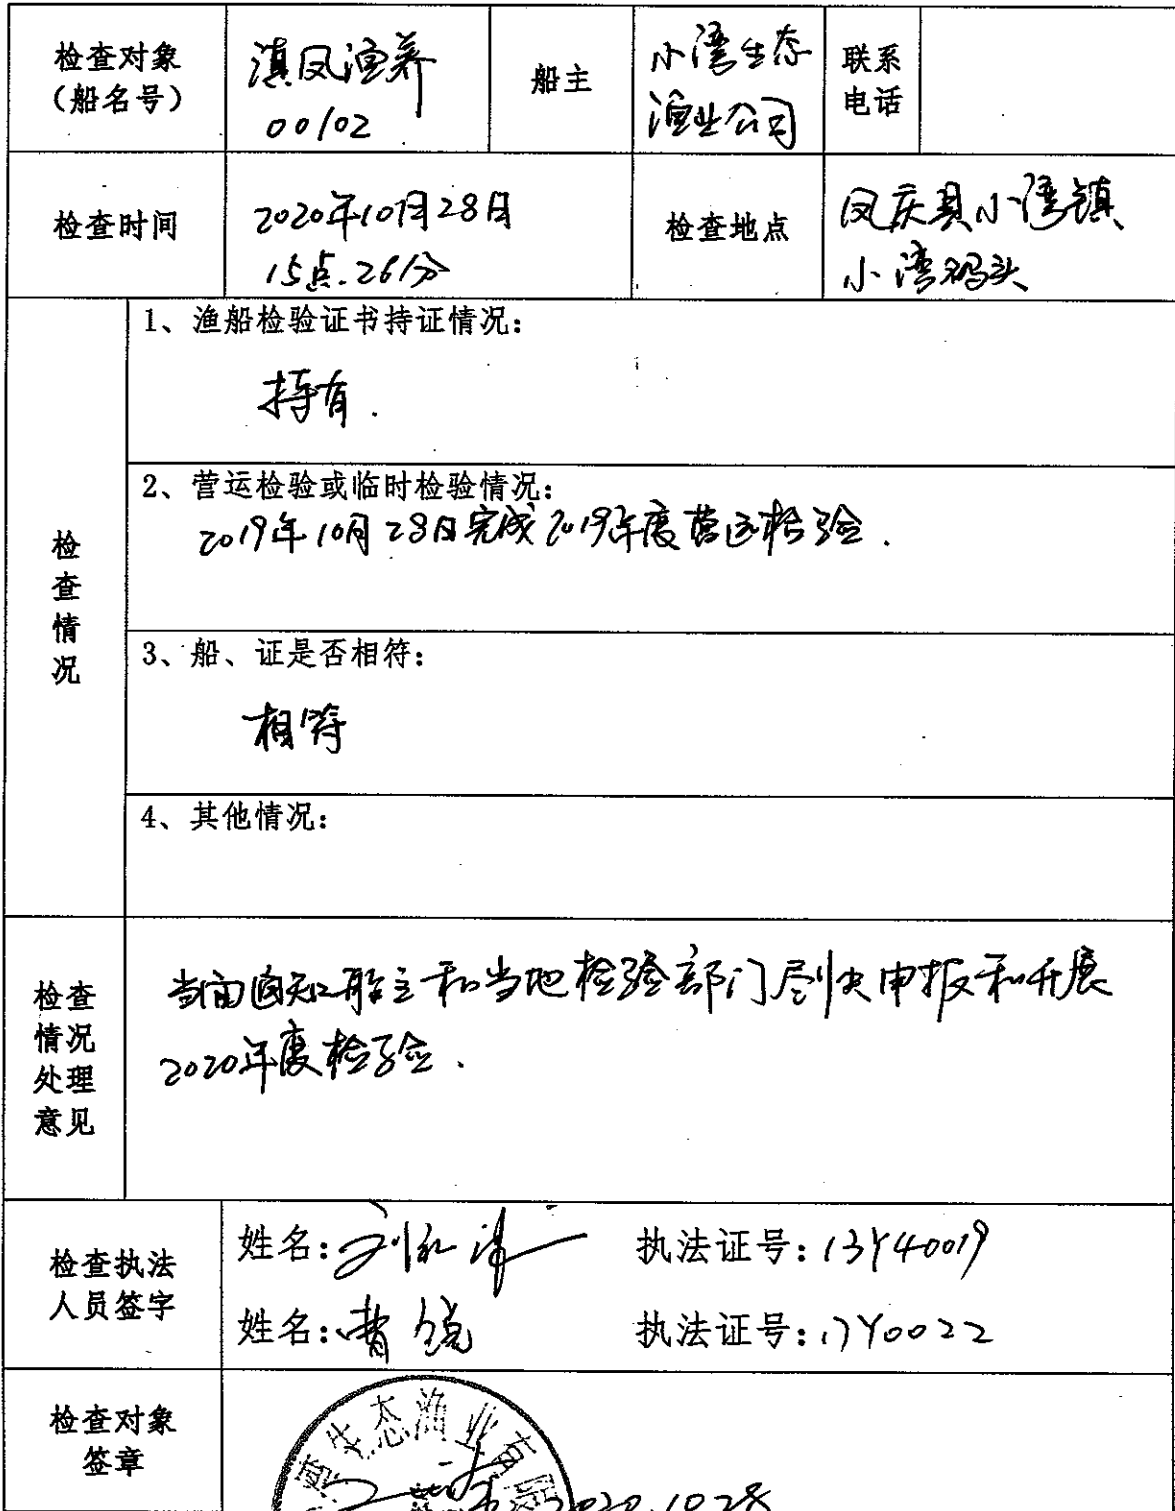 检查对象
（船名号）
滇凤渔养
00102
船主
小湾生态
渔业公司
联系
电话
检查时间
2020年10月28日
15点.26分
检查地点
凤庆县小湾镇
小湾码头
检查情况
1、渔船检验证书持证情况：
持有.
2、营运检验或临时检验情况：
2019年10月28日完成2019年度营运检验.
3、船、证是否相符：
相符
4、其他情况：
检查
情况
处理
意见
当面通知船主和当地检验部门尽快申报和开展
2020年度检验.
检查执法
人员签字
姓名： 执法证号：13Y40019
姓名：曹锐 执法证号：17Y0022
检查对象
签章
生态渔业有限
2020.10.28